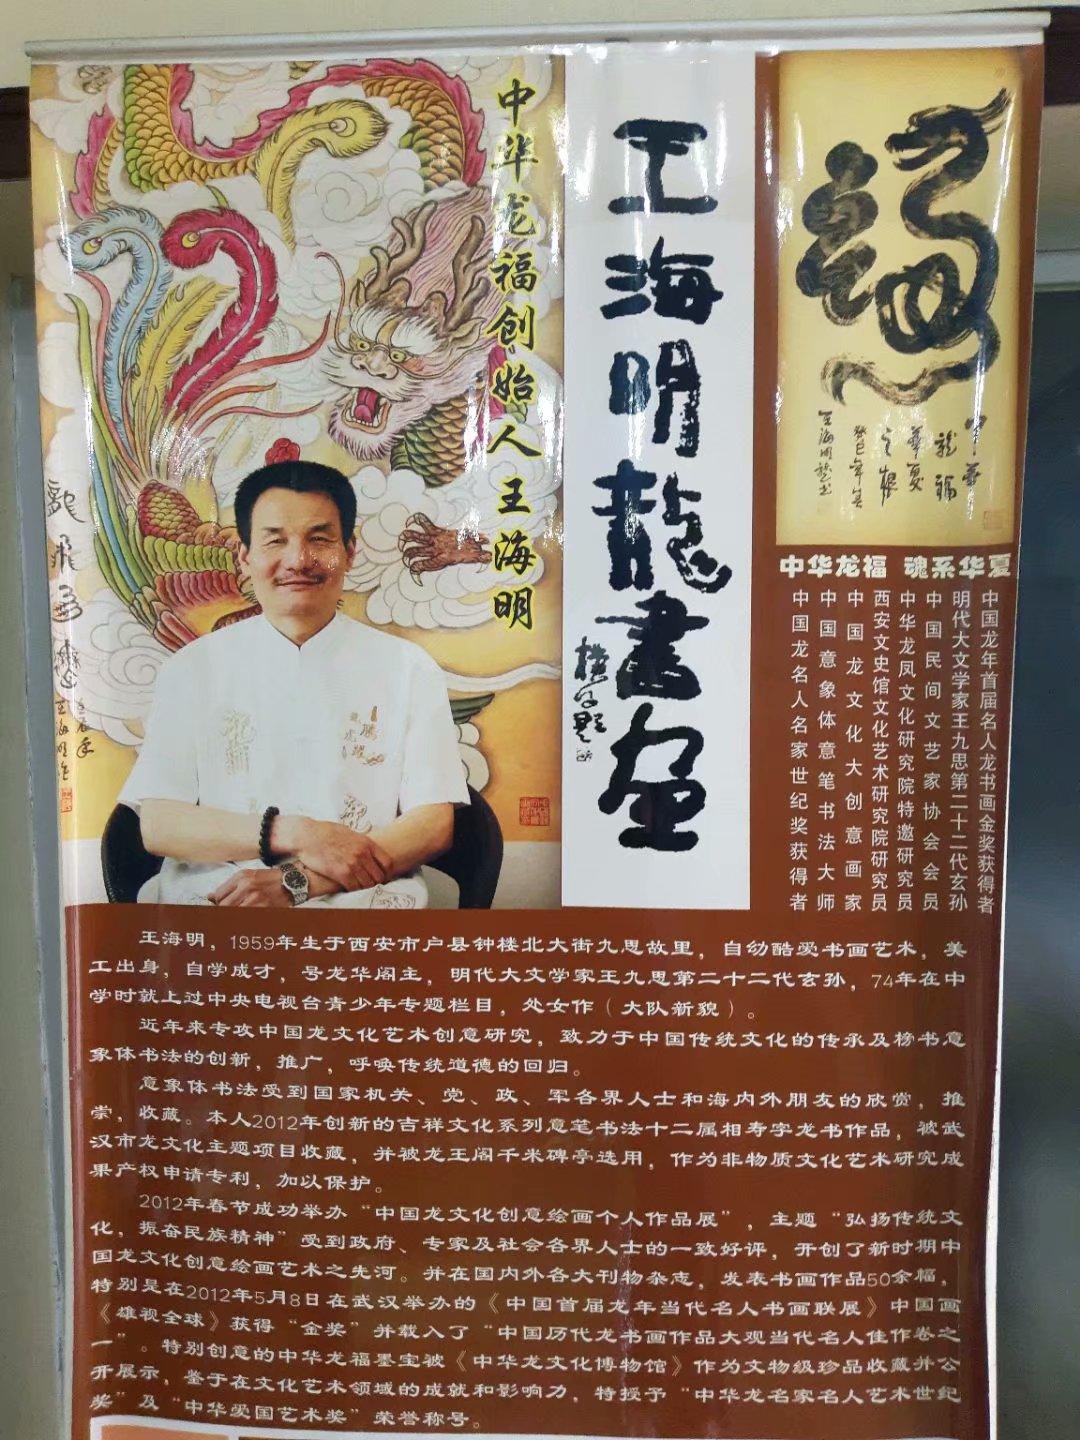 中华龙福创始人王海明
王海明龍書画
龍飛
王海明
中华龙福 魂系华夏
中国龙年首届名人龙书画金奖获得者
明代大文学家王九思第二十二代玄孙
中国民间文艺家协会会员
中华龙凤文化研究院特邀研究员
西安文史馆文化艺术研究院研究员
中国龙文化大创意画家
中国意象体意笔书法大师
中国龙名人名家世纪奖获得者
王海明，1959年生于西安市户县钟楼北大街九思故里，自幼酷爱书画艺术，美
工出身，自学成才，号龙华阁主，明代大文学家王九思第二十二代玄孙，74年在中
学时就上过中央电视台青少年专题栏目，处女作（大队新貌）。
近年来专攻中国龙文化艺术创意研究，致力于中国传统文化的传承及榜书意
象体书法的创新，推广，呼唤传统道德的回归。
意象体书法受到国家机关、党、政、军各界人士和海内外朋友的欣赏，推
崇，收藏。本人2012年创新的吉祥文化系列意笔书法十二属相寿字龙书作品，被武
汉市龙文化主题项目收藏，并被龙王阁千米碑亭选用，作为非物质文化艺术研究成
果产权申请专利，加以保护。
2012年春节成功举办“中国龙文化创意绘画个人作品展”，主题“弘扬传统文
化，振奋民族精神”受到政府、专家及社会各界人士的一致好评，开创了新时期中
国龙文化创意绘画艺术之先河。并在国内外各大刊物杂志，发表书画作品50余幅，
特别是在2012年5月8日在武汉举办的《中国首届龙年当代名人书画联展》中国画
《雄视全球》获得“金奖”并载入了“中国历代龙书画作品大观当代名人佳作卷之
一”。特别创意的中华龙福墨宝被《中华龙文化博物馆》作为文物级珍品收藏并公
开展示，鉴于在文化艺术领域的成就和影响力，特授予“中华龙名家名人艺术世纪
奖”及“中华爱国艺术奖”荣誉称号。